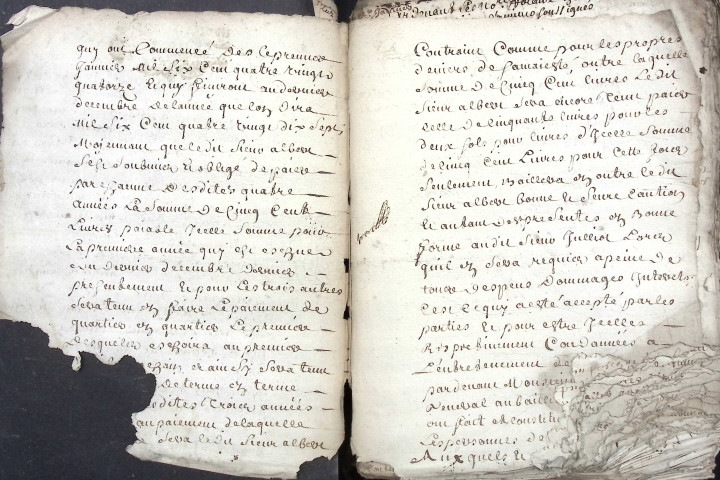 qui ont Commencé des le premier
Janvier Mil Six Cent quatre vingt
quatorze et qui finiront au dernier
decembre de lannée que lon dira
Mil Six Cent quatre vingt dix Sept
Moyennant que ledit Sieur albert
Sest Soubmis et obligé de paier
par chacune desdites quatre
années La Somme De Cinq Cent
Livres paiable Icelle Somme pour
La premiere année qui est escheue
au dernier decembre dernier
presentement et pour les trois autres
Sera tenu en faire le paiement de
quartier en quartier le premier
desquels eschoira au premier
et ainsy Sera tenu
de terme en terme
desdites trois années
au paiement de laquelle
Sera ledit Sieur albert
Contraint Comme pour les propres
deniers de Sa maiesté, outre laquelle
Somme de Cinq Cent livres ledit
Sieur albert Sera encore tenu paier
celle de Cinquante livres pour les
deux Sols pour livres d'Icelle Somme
de Cinq Cent Livres pour cette fois
Seulement, Baillera en outre ledit
Sieur albert bonne et Seure Caution
et autant des presentes en bonne
forme audit Sieur Julliot Lors
quil en Sera requis a peine de
tous despens Dommages Interets
Cest ce qui a esté accepté par les
parties et pour estre Icelles
Respectivement Condamnées a
L'entretenement de
pardevant Monsieur
au bailli
ont fait et constitué
Les personnes de
Auxquels et